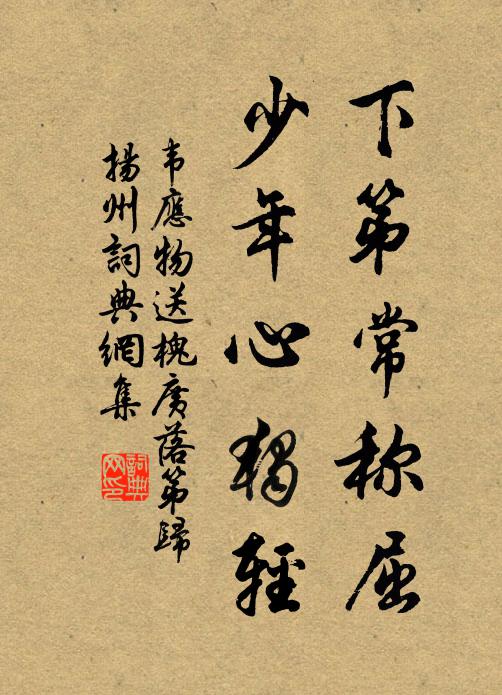 下第常称屈
少年心独輕
韦應物送槐廣落第歸
揚州詞典網集
詞典网印